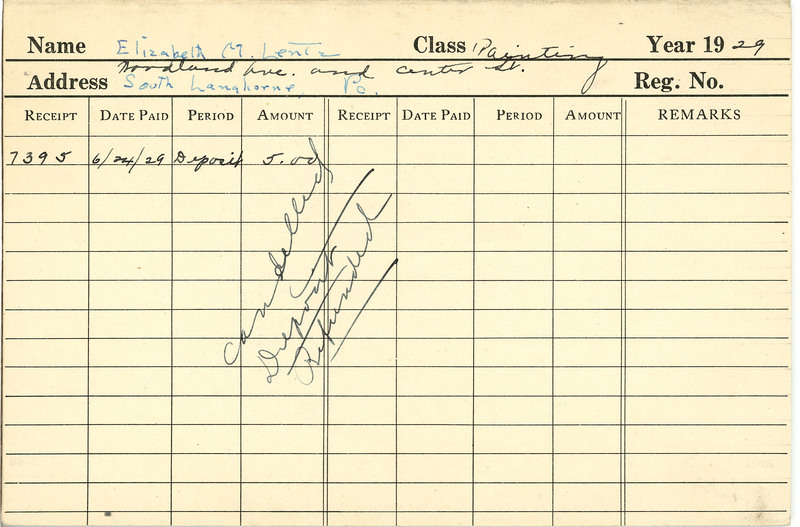 Name Elizabeth M. Lentz Class Painting Year 19 29
Woodland Ave. and Center St.
Address South Langhorne, Pa. Reg. No.
RECEIPT DATE PAID PERIOD AMOUNT RECEIPT DATE PAID PERIOD AMOUNT REMARKS
7395 6/24/29 Deposit 5.00
Cancelled
Deposit
Refunded